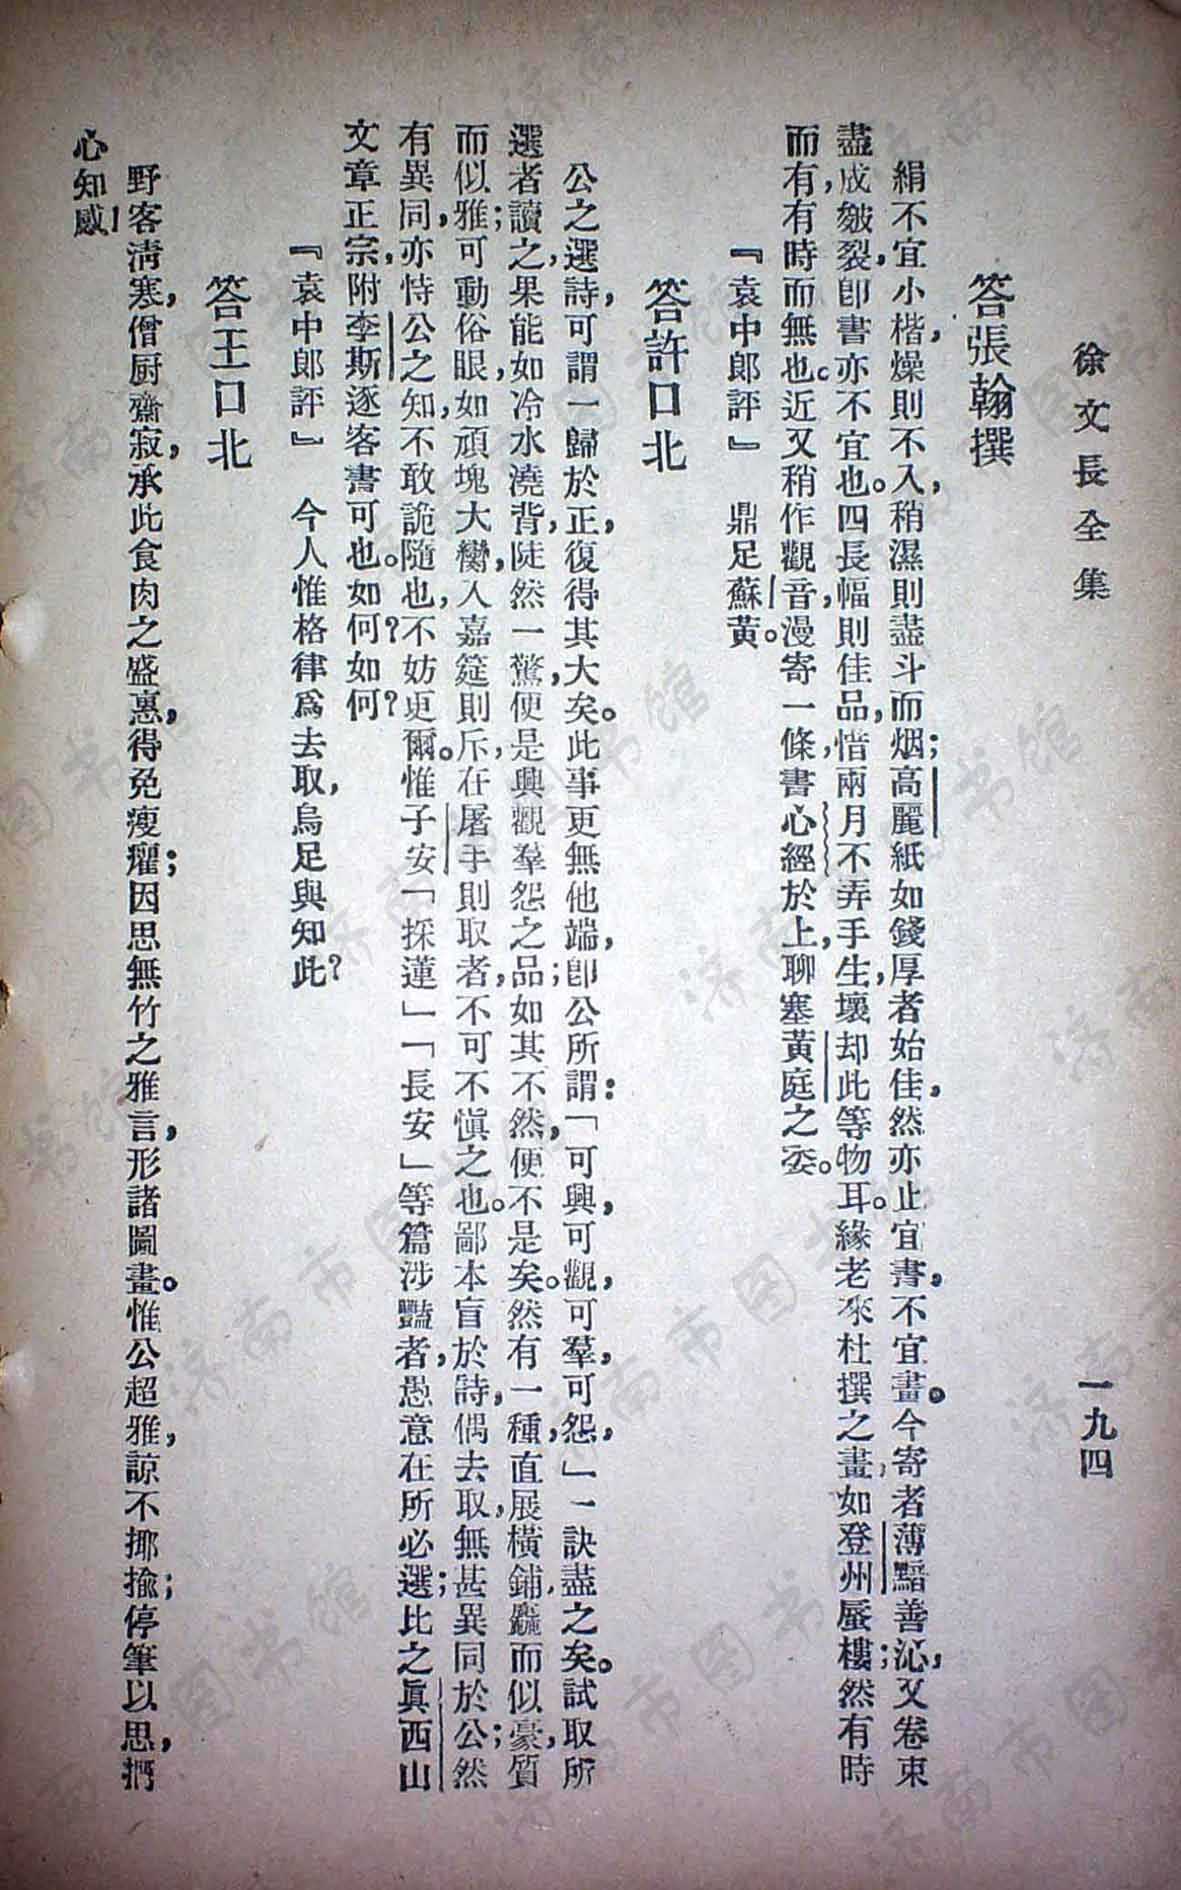 徐文長全集
一九四
答張翰撰
絹不宜小楷，燥則不入，稍濕則盡斗而烟；高麗紙如錢厚者始佳，然亦止宜書，不宜畫。今寄者薄黯善沁，又卷束
盡成皴裂，卽書亦不宜也。四長幅則佳品，惜兩月不弄手生，壞却此等物耳。緣老來杜撰之畫，如登州蜃樓；然有時
而有，有時而無也。近又稍作觀音，漫寄一條，書心經於上，聊塞黃庭之委。
『袁中郎評』　鼎足蘇黃。
答許口北
公之選詩，可謂一歸於正，復得其大矣。此事更無他端，卽公所謂：「可興，可觀，可羣，可怨，」一訣盡之矣。試取所
選者讀之，果能如冷水澆背，陡然一驚，便是興觀羣怨之品；如其不然，便不是矣。然有一種，直展橫鋪，麤而似豪，質
而似雅；可動俗眼，如頑塊大臠，入嘉筵則斥，在屠手則取者，不可不愼之也。鄙本盲於詩，偶去取，無甚異同於公；然
有異同，亦恃公之知，不敢詭隨也，不妨更爾。惟子安「採蓮」「長安」等篇涉豔者，愚意在所必選；比之眞西山
文章正宗，附李斯逐客書可也。如何？如何？
『袁中郎評』　今人惟格律爲去取，烏足與知此？
答王口北
野客淸寒，僧厨齋寂，承此食肉之盛惠，得免瘦癯；因思無竹之雅言，形諸圖畫。惟公超雅，諒不揶揄；停筆以思，捫
心知感！